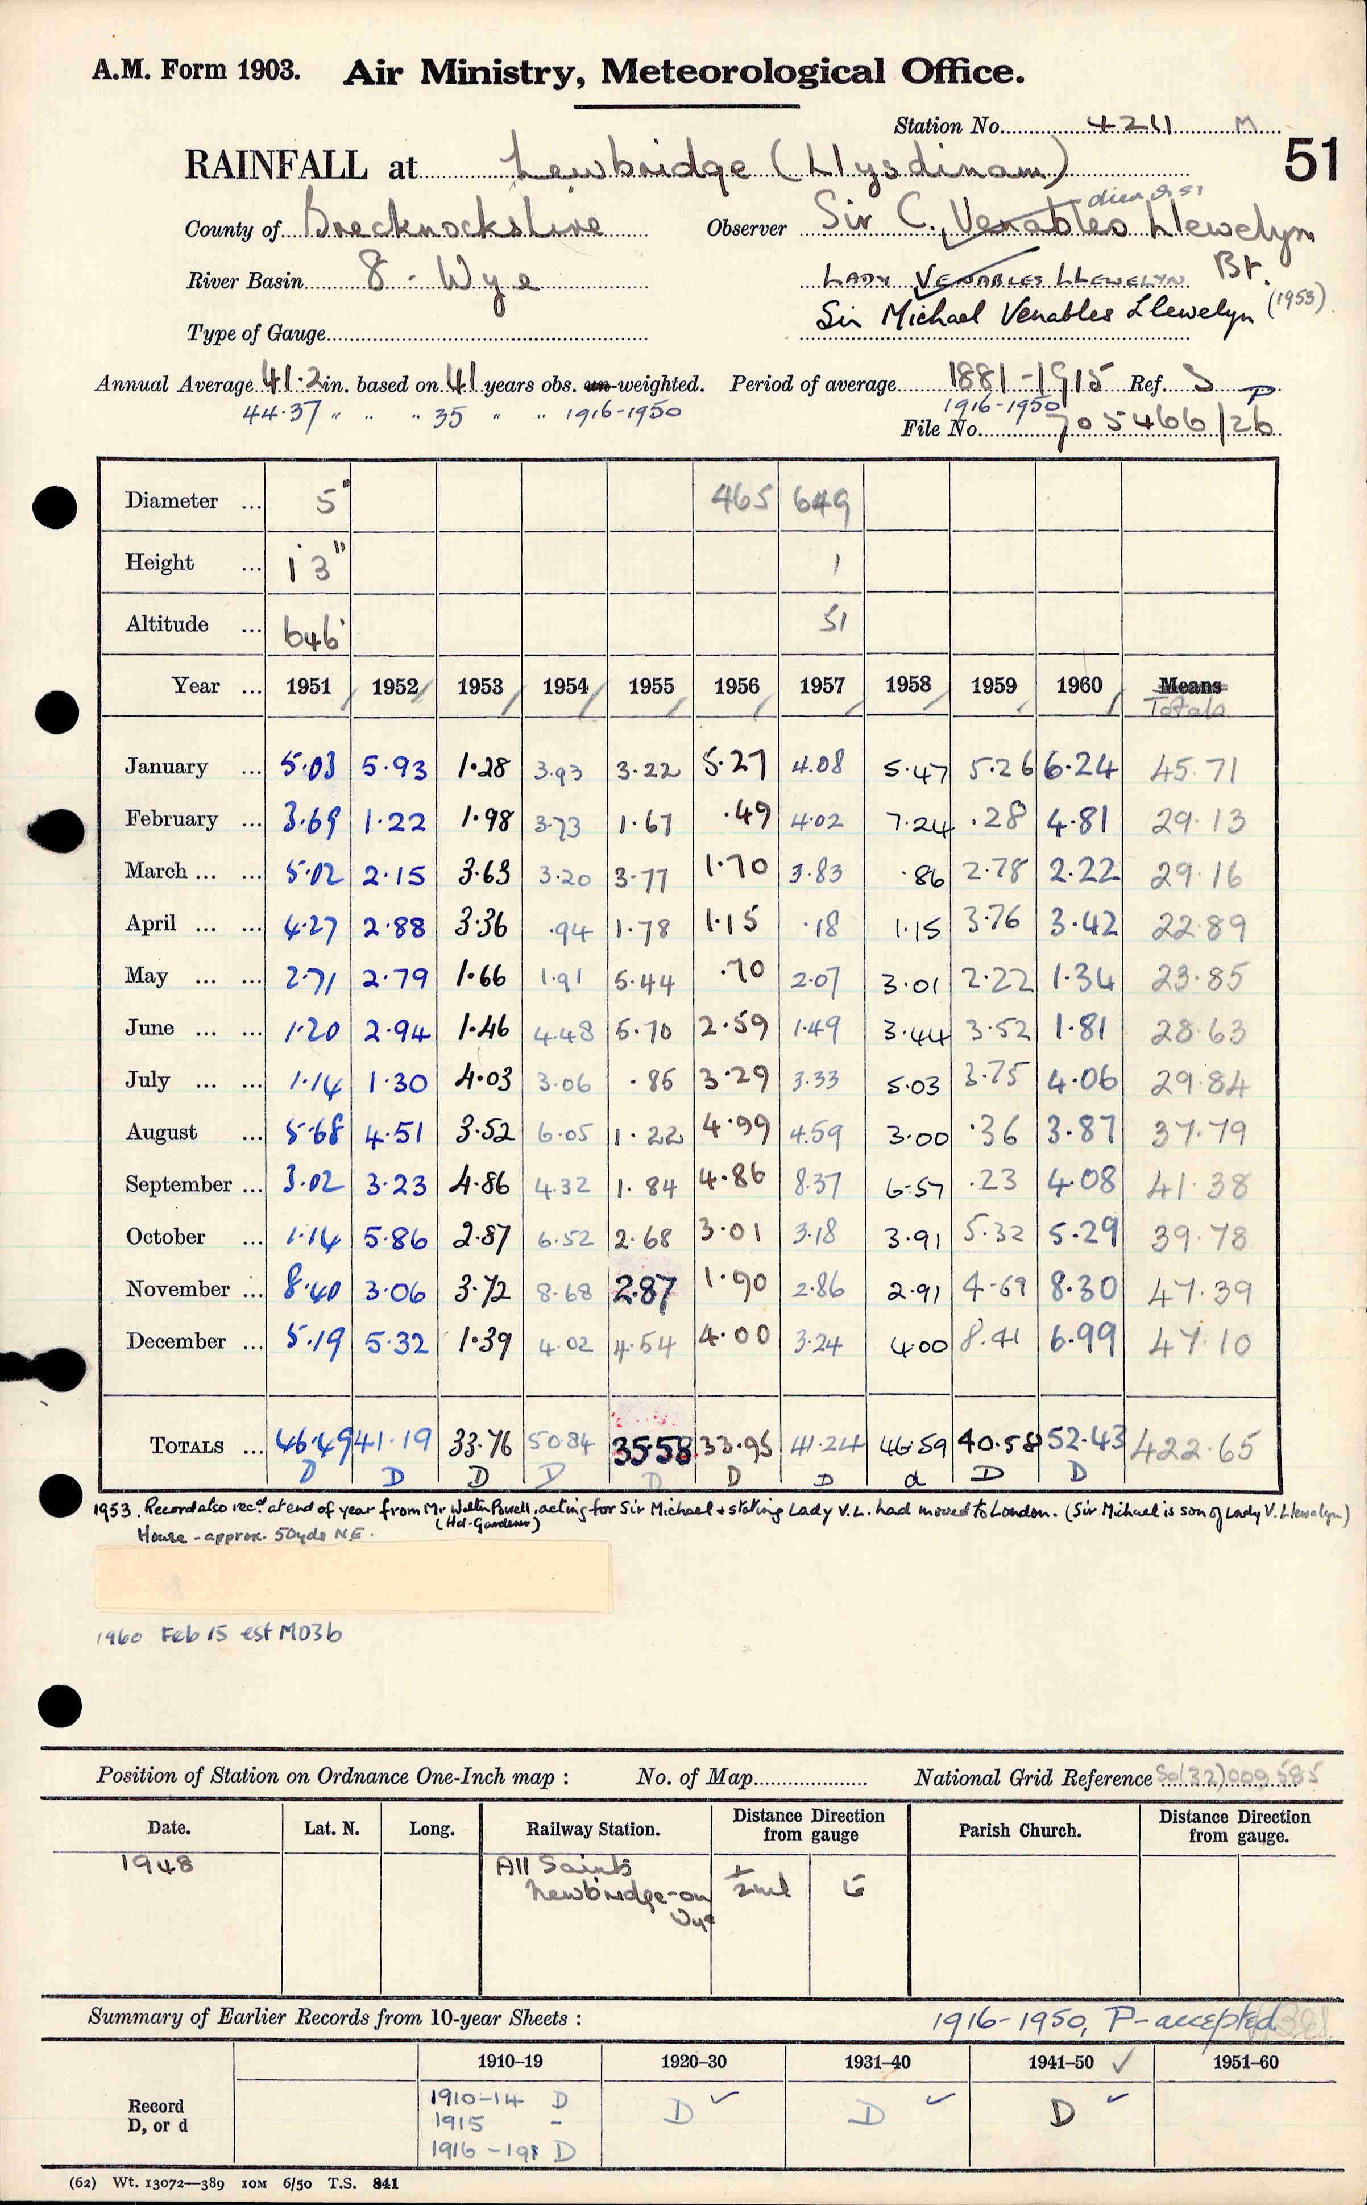 A.M. Form 1903. Air Ministry, Meteorological Office.
Station No. 4211 M
RAINFALL at Newbridge (Llysdinam) 51
County of Brecknockshire Observer Sir C. Venables Llewelyn Bt.
River Basin 8 - Wye LADY VENABLES LLEWELYN
Type of Gauge Sir Michael Venables Llewelyn (1953)
Annual Average 41.2 in. based on 41 years obs. un-weighted. Period of average 1881-1915 Ref. S P
44.37 " " " 35 " " 1916-1950 1916-1950
File No. 705466/26
Diameter ... 5" 465 649
Height ... 1' 3" 1
Altitude ... 646' 51
Year ... 1951 1952 1953 1954 1955 1956 1957 1958 1959 1960 Means Totals
January ... 5.03 5.93 1.28 3.93 3.22 5.27 4.08 5.47 5.26 6.24 45.71
February ... 3.69 1.22 1.98 3.73 1.67 .49 4.02 7.24 .28 4.81 29.13
March ... ... 5.02 2.15 3.63 3.20 3.77 1.70 3.83 .86 2.78 2.22 29.16
April ... ... 4.27 2.88 3.36 .94 1.78 1.15 .18 1.15 3.76 3.42 22.89
May ... ... 2.71 2.79 1.66 1.91 5.44 .70 2.07 3.01 2.22 1.34 23.85
June ... ... 1.20 2.94 1.46 4.48 5.70 2.59 1.49 3.44 3.52 1.81 28.63
July ... ... 1.14 1.30 4.03 3.06 .85 3.29 3.33 5.03 3.75 4.06 29.84
August ... 5.68 4.51 3.52 6.05 1.22 4.99 4.59 3.00 .36 3.87 37.79
September ... 3.02 3.23 4.86 4.32 1.84 4.86 8.37 6.57 .23 4.08 41.38
October ... 1.14 5.86 2.87 6.52 2.68 3.01 3.18 3.91 5.32 5.29 39.78
November ... 8.40 3.06 3.72 8.68 2.87 1.90 2.86 2.91 4.69 8.30 47.39
December ... 5.19 5.32 1.39 4.02 4.54 4.00 3.24 4.00 8.41 6.99 47.10
TOTALS ... 46.49 41.19 33.76 50.84 35.58 33.95 41.24 46.59 40.58 52.43 422.65
D D D D D D D d D D
1953. Record also recd. at end of year from Mr Walter Powell, acting for Sir Michael & stating Lady V.L. had moved to London. (Sir Michael is son of Lady V. Llewelyn)
(Hd-Gardener)
House - approx. 50yds N.E.
1960 Feb 15 est M03b
Position of Station on Ordnance One-Inch map : No. of Map National Grid Reference So(32)009585
Date. Lat. N. Long. Railway Station. Distance Direction from gauge Parish Church. Distance Direction from gauge.
1948 All Saints ½ml E
Newbridge-on
Wye
Summary of Earlier Records from 10-year Sheets : 1916-1950, P-accepted
1910-19 1920-30 1931-40 1941-50 ✓ 1951-60
Record D, or d
1910-14 D D ✓ D ✓ D ✓
1915 -
1916-191 D
(62) Wt. 13072—389 10M 6/50 T.S. 841